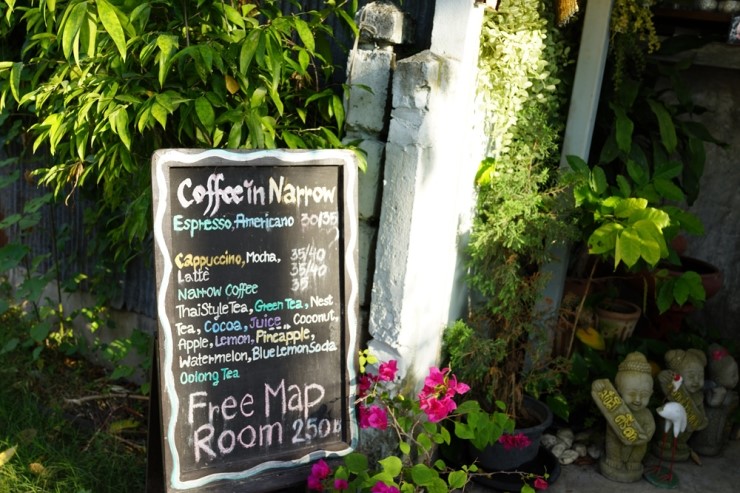 Coffee in Narrow
Espresso, Americano 30/35
Cappuccino, Mocha, 35/40
Latte 35/40
Narrow Coffee 35
Thai Style Tea, Green Tea, Nest
Tea, Cocoa, Juice.. Coconut,
Apple, Lemon, Pineapple,
Watermelon, Blue Lemon Soda
Oolong Tea
Free Map
Room 250฿